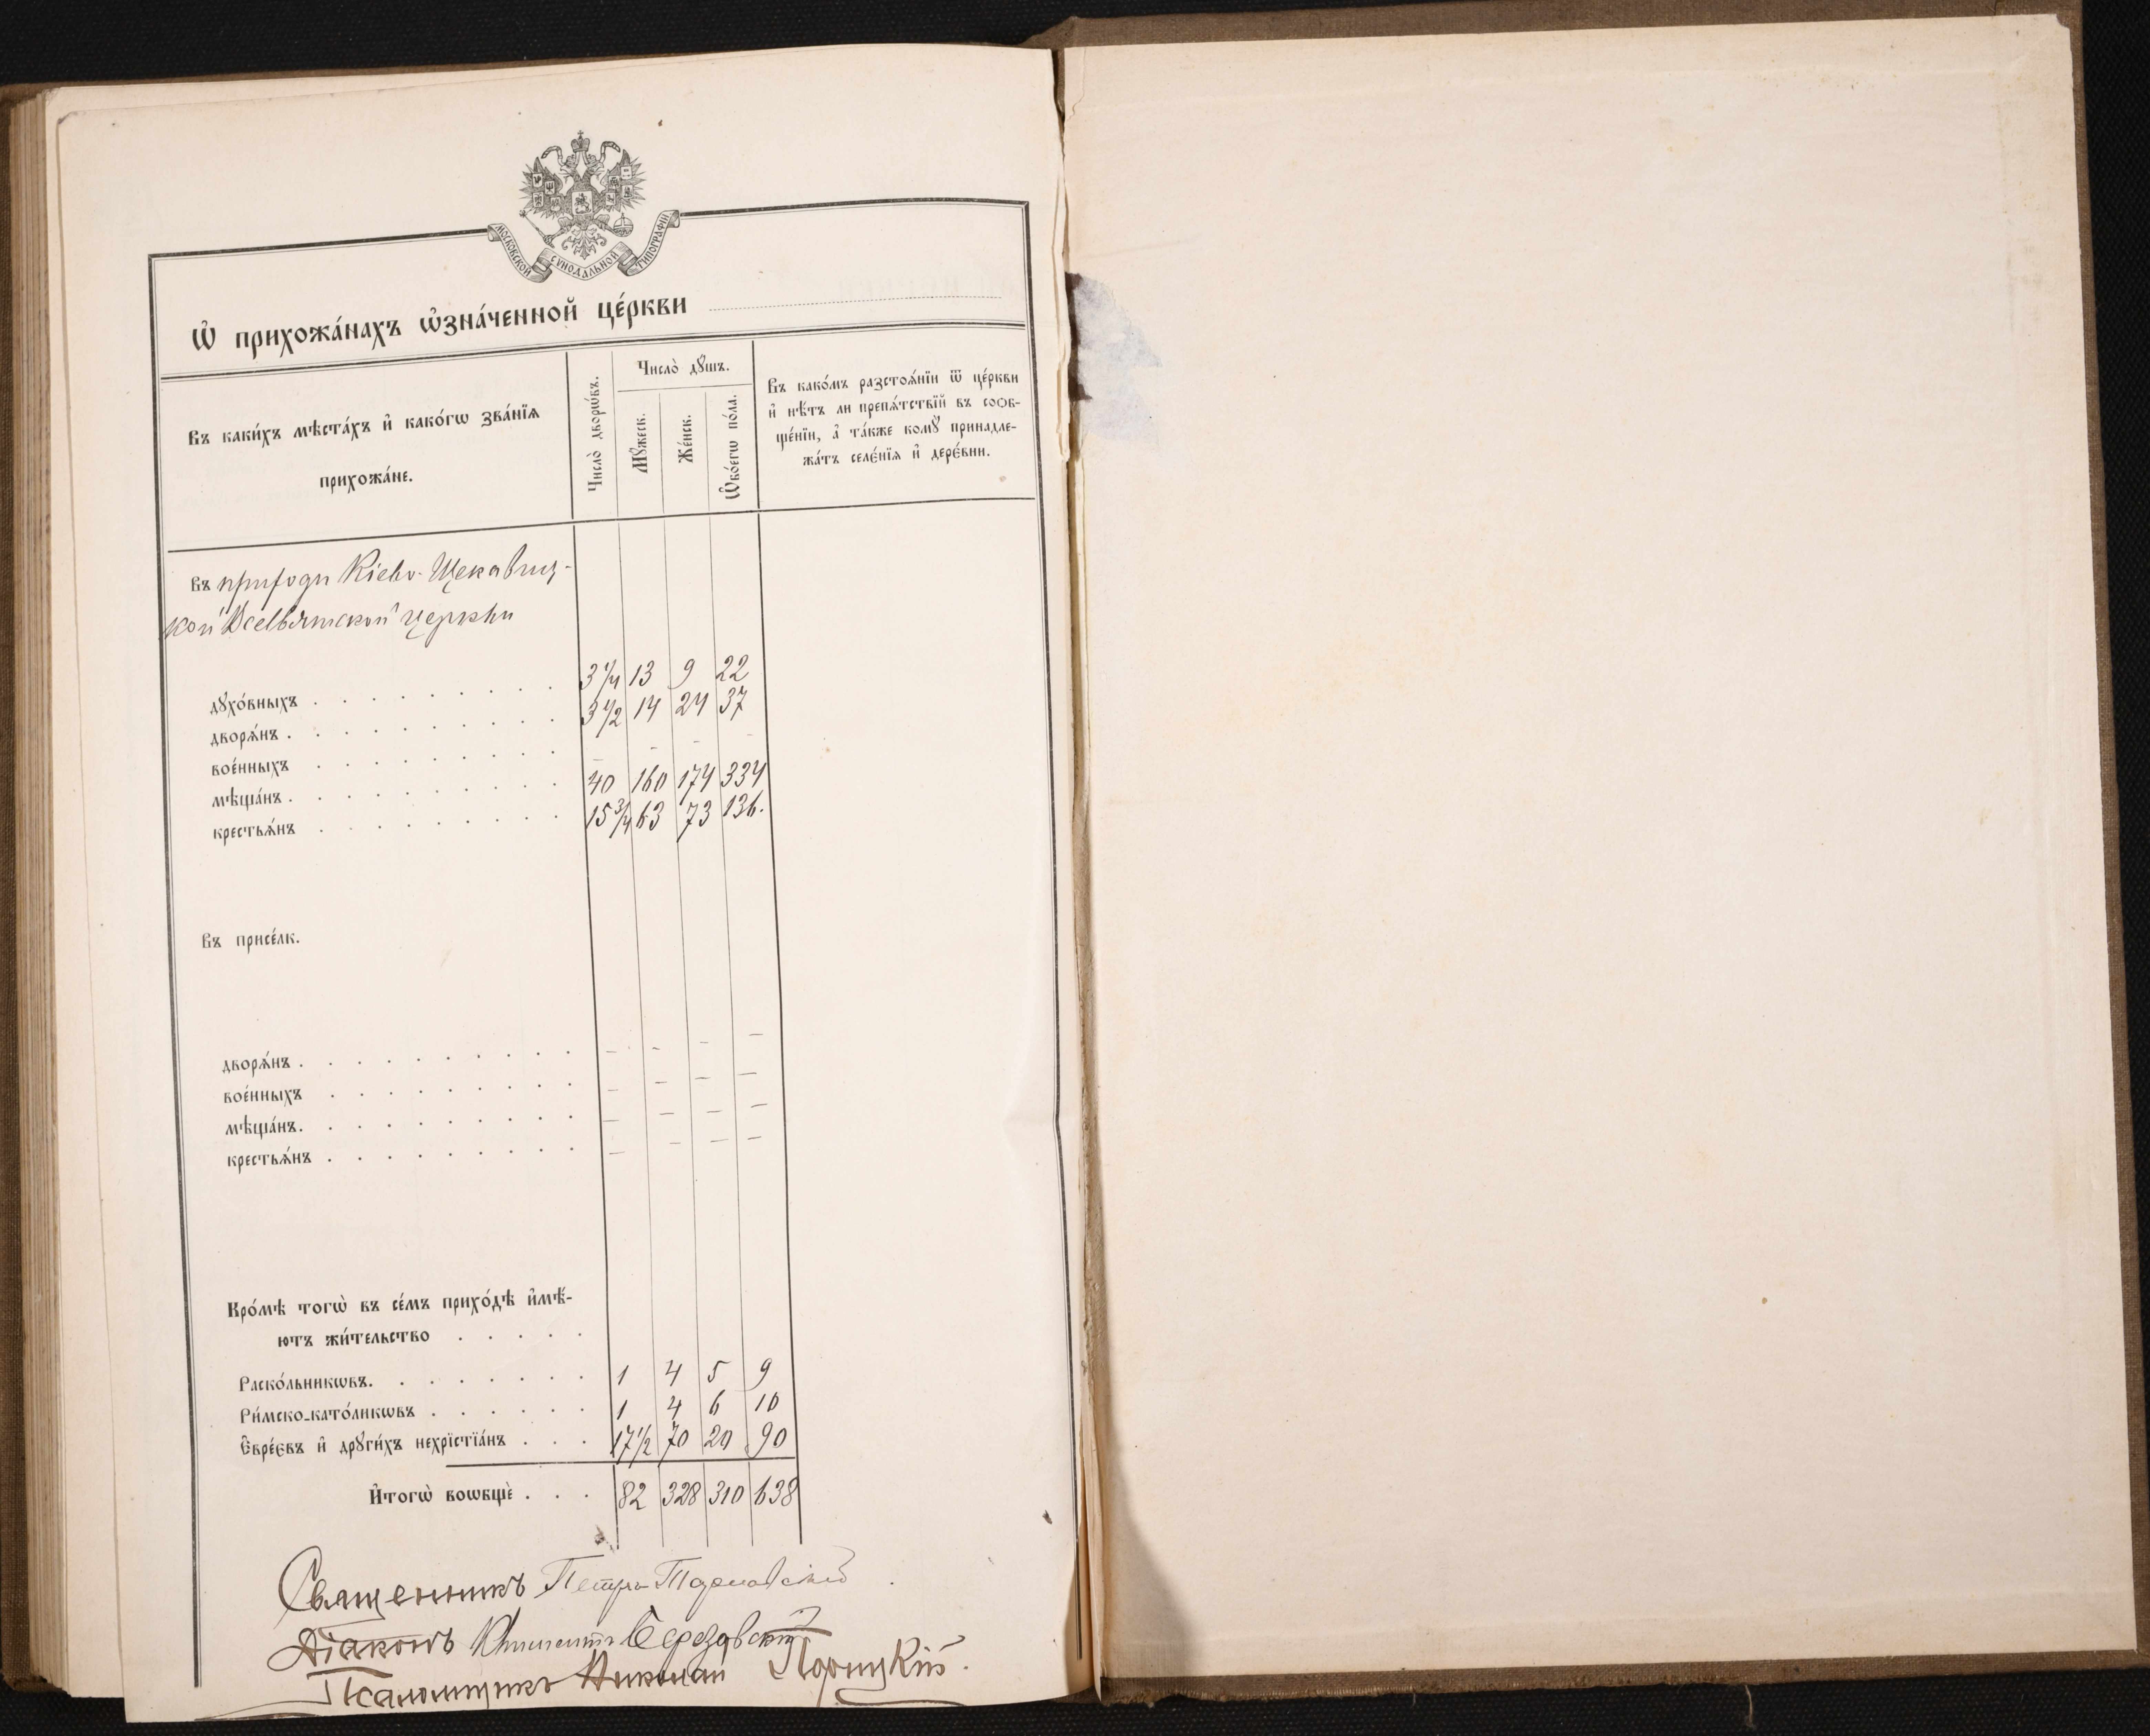 МОСКОВСКОЙ СѴНОДАЛЬНОЙ ТИПОГРАФІИ
Ѽ прихожа́нахъ ѡ҆зна́ченной це́ркви
Въ каки́хъ мѣста́хъ и҆ како́гѡ зва́нїѧ
прихожа́не.
Число̀ дворѡ́въ.
Число̀ дꙋшъ.
Мꙋ́жеск.
Же́нск.
Ѻ҆бо́егѡ по́ла.
Въ како́мъ разстоѧ́нїи ѿ це́ркви
и҆ нѣ́тъ ли препѧ́тствїй въ сооб-
ще́нїи, а҆ та́кже комꙋ̀ принадле-
жа́тъ селе́нїѧ и҆ дере́вни.
Въ приходѣ Кіево-Щекавиц-
кой Всесвятской церкви
дꙋхо́вныхъ . . . . . . . . . 3 1/4 13 9 22
дворѧ́нъ . . . . . . . . . . 3 1/2 14 24 37
вое́нныхъ . . . . . . . . . – – – –
мѣща́нъ . . . . . . . . . . 40 160 174 334
крестьѧ́нъ . . . . . . . . . 15 3/4 63 73 136.
Въ присе́лк.
дворѧ́нъ . . . . . . . . . . – – – –
вое́нныхъ . . . . . . . . . – – – –
мѣща́нъ. . . . . . . . . . – – – –
крестьѧ́нъ . . . . . . . . . – – – –
Кро́мѣ тогѡ̀ въ се́мъ прихо́дѣ и҆мѣ́-
ютъ жи́тельство . . . . .
Раско́льникѡвъ. . . . . . . . 1 4 5 9
Ри́мско-като́ликѡвъ . . . . . . 1 4 6 10
Е҆вре́євъ и҆ дрꙋги́хъ нехрїстїа́нъ . . . 17 1/2 70 20 90
И҆тогѡ̀ воѡбщѐ . . . 82 328 310 638
Священникъ Петръ Тарнавскій
Діаконъ Климентъ Березовскій
Псаломщикъ Николай